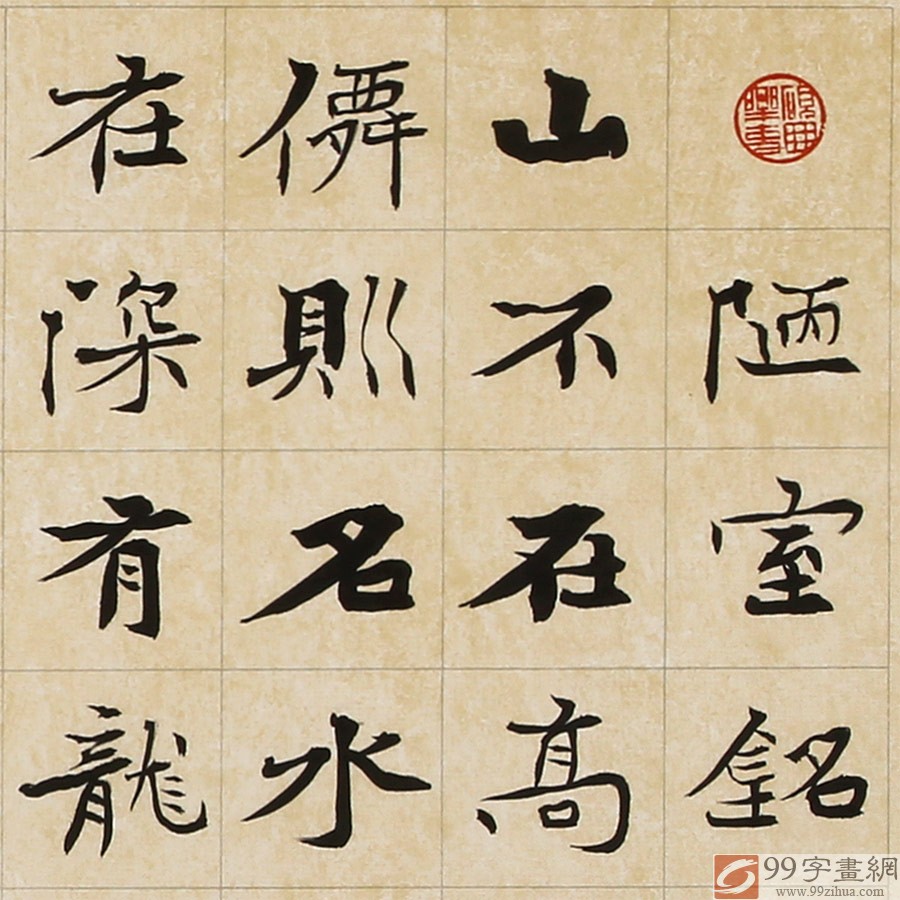 陋室銘
山不在高
僊則名水
在深有龍
99字畫網
www.99zihua.com